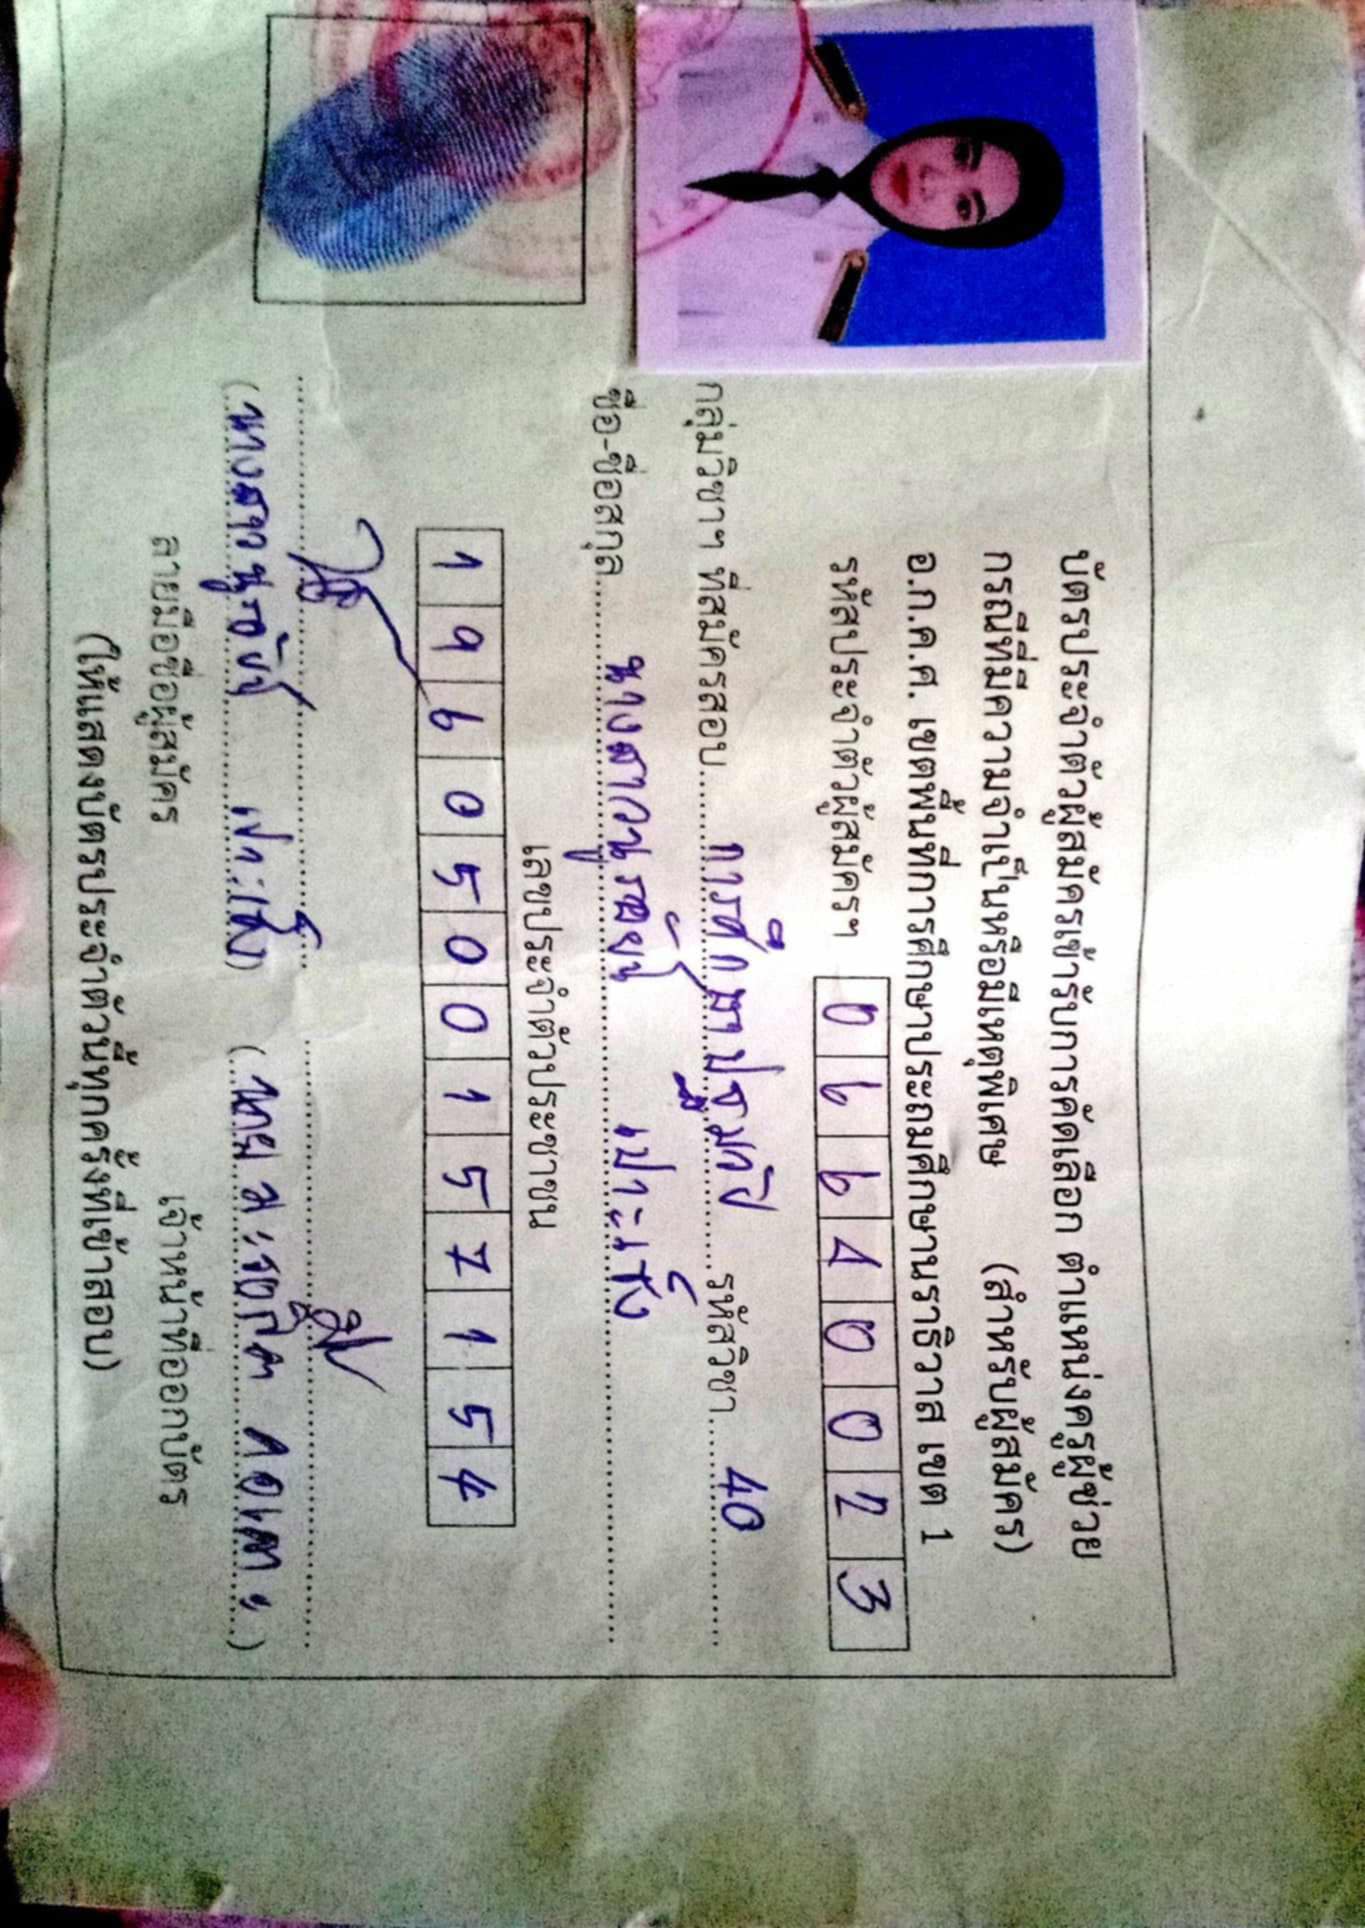 บัตรประจำตัวผู้สมัครเข้ารับการคัดเลือก ตำแหน่งครูผู้ช่วย
กรณีที่มีความจำเป็นหรือมีเหตุพิเศษ (สำหรับผู้สมัคร)
อ.ก.ค.ศ. เขตพื้นที่การศึกษาประถมศึกษานราธิวาส เขต 1
รหัสประจำตัวผู้สมัครฯ 0 6 6 4 0 0 2 3
กลุ่มวิชาฯ ที่สมัครสอบ...... การศึกษาปฐมวัย ...... รหัสวิชา...... 40
ชื่อ-ชื่อสกุล...... นางสาวนูรอัยนี เปาะเซ็ง
เลขประจำตัวประชาชน
1 9 6 0 5 0 0 1 5 7 1 5 4
(นางสาวนูรอัยนี เปาะเซ็ง) (นาย
ลายมือชื่อผู้สมัคร เจ้าหน้าที่ออกบัตร
(ให้แสดงบัตรประจำตัวนี้ทุกครั้งที่เข้าสอบ)